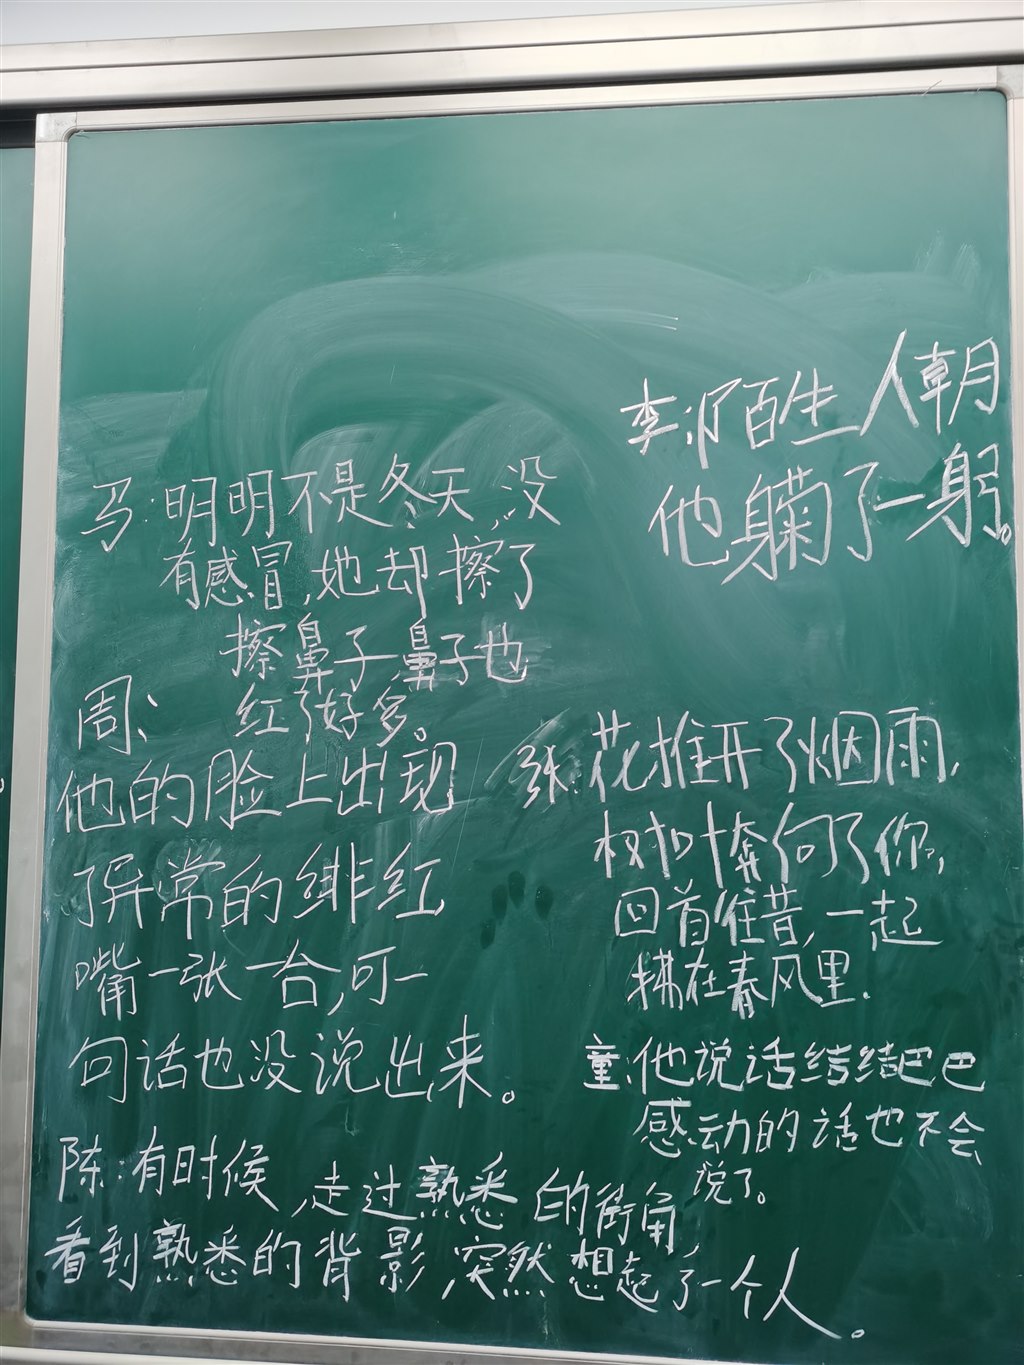 李:陌生人朝
他鞠了一躬。
马:明明不是冬天,没
有感冒,她却擦了
擦鼻子,鼻子也
红了好多。
周:
他的脸上出现
了异常的绯红
嘴一张一合,可一
句话也没说出来。
张:花推开了烟雨,
树叶奔向了你,
回首往昔,一起
拂在春风里.
童:他说话结结巴巴
感动的话也不会
说了。
陈:有时候,走过熟悉的街角,
看到熟悉的背影,突然想起了一个人。